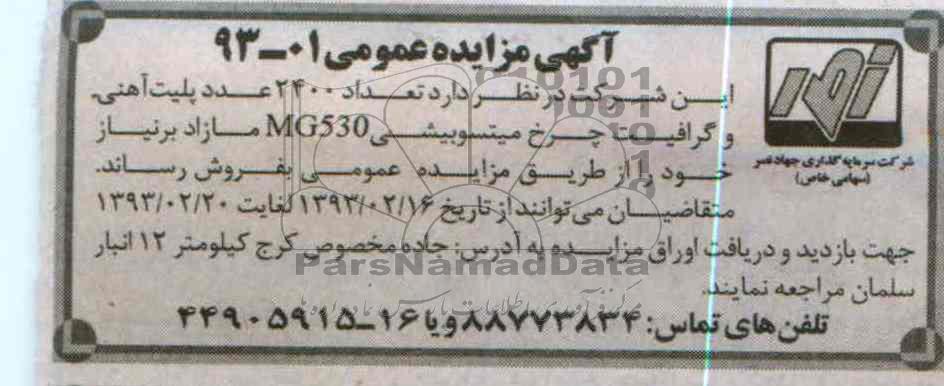 آگهی مزایده عمومی ۰۱-۹۳
این شرکت در نظر دارد تعداد ۲۴۰۰ عدد پلیت آهنی
و گرافیت چرخ میتسوبیشی MG530 مازاد برنیاز
خود را از طریق مزایده عمومی بفروش رساند.
متقاضیان می‌توانند از تاریخ ۱۳۹۳/۰۲/۱۶ لغایت ۱۳۹۳/۰۲/۲۰
جهت بازدید و دریافت اوراق مزایده به آدرس: جاده مخصوص کرج کیلومتر ۱۲ انبار
سلمان مراجعه نمایند.
تلفن های تماس: ۸۸۷۷۳۸۳۴ و یا ۱۶-۴۴۹۰۵۹۱۵
شرکت سرمایه گذاری جهاد نصر
(سهامی خاص)
ParsNamadData